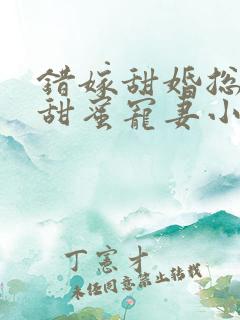 错嫁甜婚总
甜蜜宠妻小
丁宪才
未经同意禁止转载